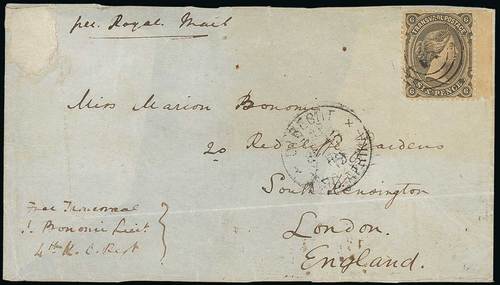 per Royal Mail
TRANSVAAL POSTAGE
6 SIX PENCE 6
Miss Marion Bonomi
20 Redcliffe Gardens
South Kensington
London.
England.
From Transvaal
Bonomi Lieut
4th K. O. Regt